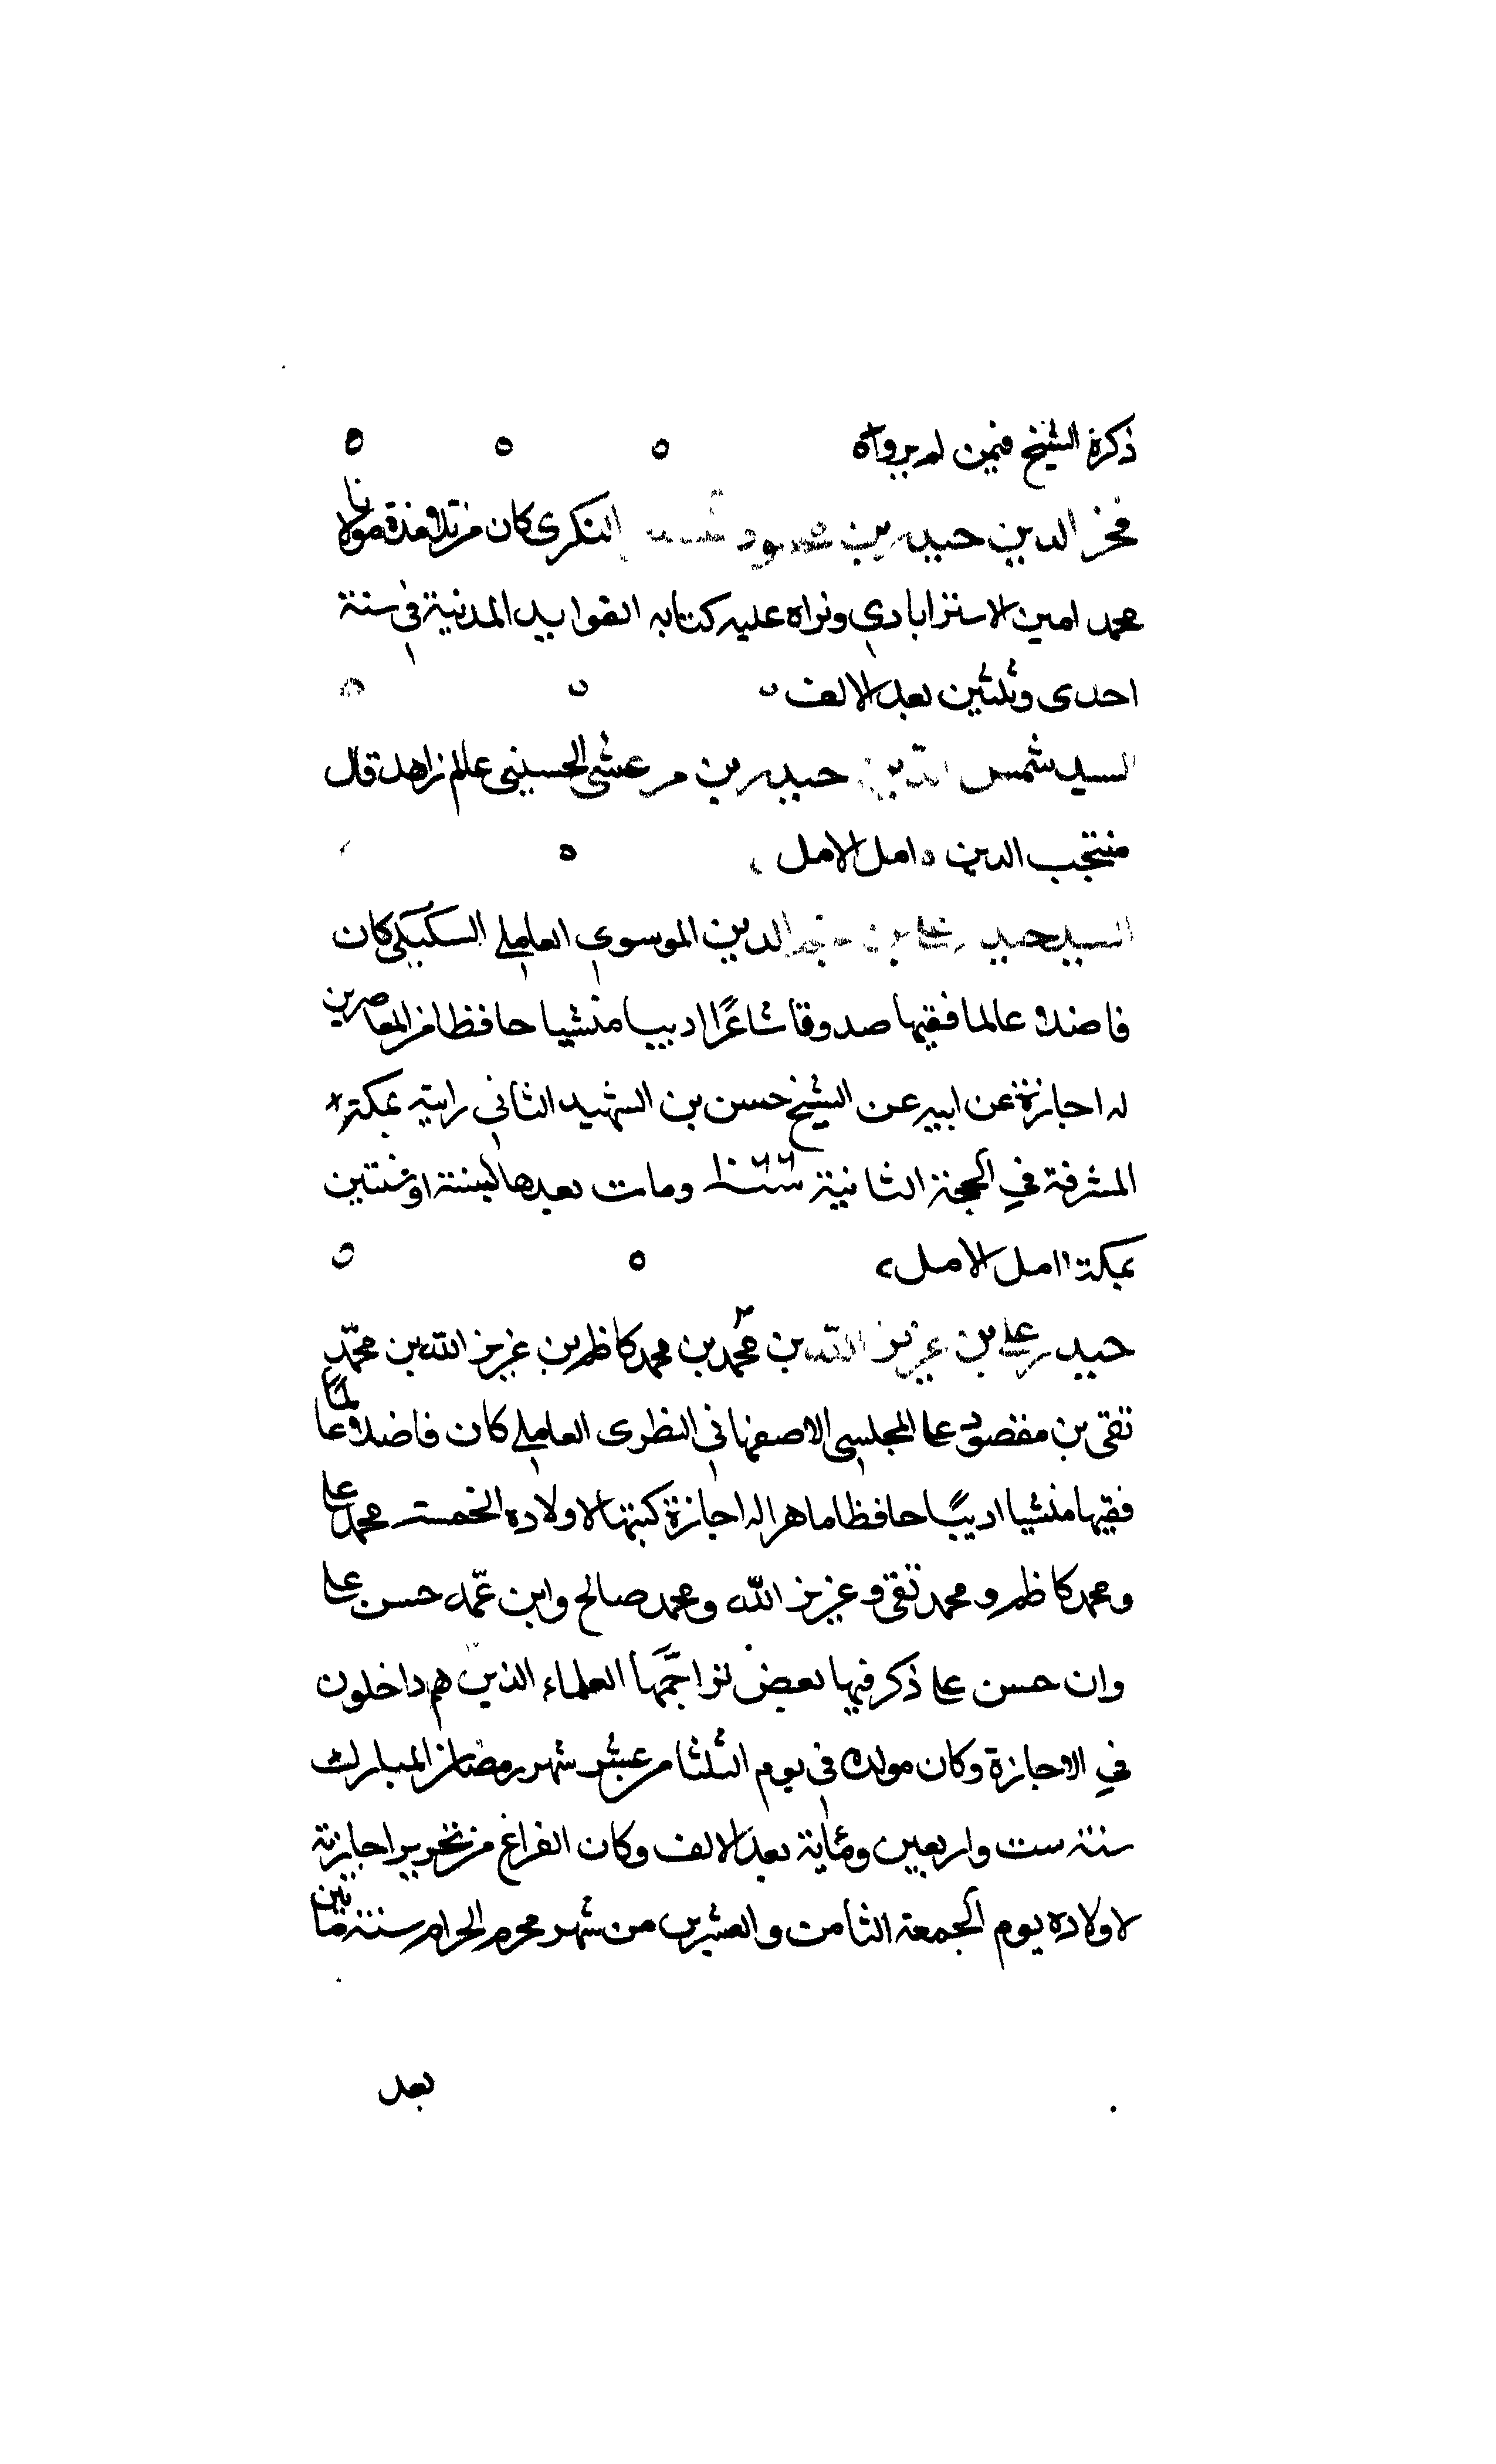 ذكرة الشيخ فيمن لم يرواه
فخر الدين حيدر بن محمود البنكري كان من تلامذة مولانا
محمد امين الاسترابادي وقراه عليه كتابه الفوايد المدنية في سنة
احدى وثلثين بعد الالف
السيد شمس الدين حيدر بن مرعشي الحسيني عالم زاهد قال
منتجب الدين امل الامل
السيد حيدر علي بن نجم الدين الموسوي العاملي السكيكي كان
فاضلا عالما فقيها صدوقا شاعرًا اديبا منشيا حافظا من المعاصرين
له اجازة عن ابيه عن الشيخ حسن بن الشهيد الثاني رايته بمكة
المشرفة في الحجة الثانية ومات بعدها بسنة او سنتين
بمكة امل الامل
حيدر علي بن عزيز الله بن محمد بن محمد كاظم بن عزيز الله بن محمّد
تقي بن مقصود على المجلسي الاصفهاني النظرى العاملي كان فاضلا عالمًا
فقيها منشيا اديبًا حافظا ماهرا له اجازة كتبها لاولاده الخمسة محمد علي
ومحمد كاظم ومحمد تقي وعزيز الله ومحمد صالح وابن عمّه حسن علي
وان حسن علي ذكر فيها بعض تراجمها العلماء الذين هم داخلون
في الاجازة وكان مولده في يوم الثلثا من عشر شهر رمضان المبارك
سنة ست واربعين ومائة بعد الالف وكان الفراغ من تحرير اجازته
لاولاده يوم الجمعة الثامن والعشرين من شهر محرم الحرام سنة مأتين
بعد